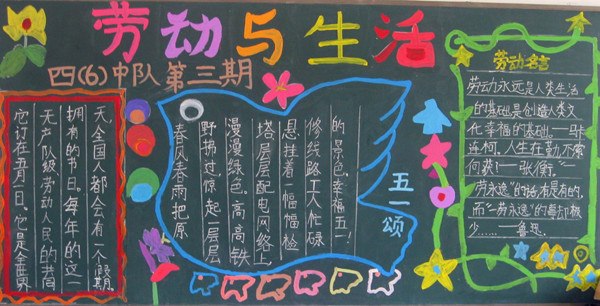 劳动与生活
四(6)中队第三期
它订在五月一日。它是全世界
无产队级、劳动人民的共同
拥有的节日。每年的这一
天全国人都会有一个假期.
五一颂
春风春雨把原
野拂过惊起一层层
漫漫绿色。高高铁
塔层层配电网络上
悬挂着一幅幅检
修线路工人忙碌
的景色,幸福五一!
劳动名言
劳动永远是人类生活
的基础是创造人类文
化幸福的基础。—马卡
连柯.人生在勤不索
何获!—张衡.
"劳永远"的话有是有的,
而"劳永远"的事却极
少……—鲁迅.